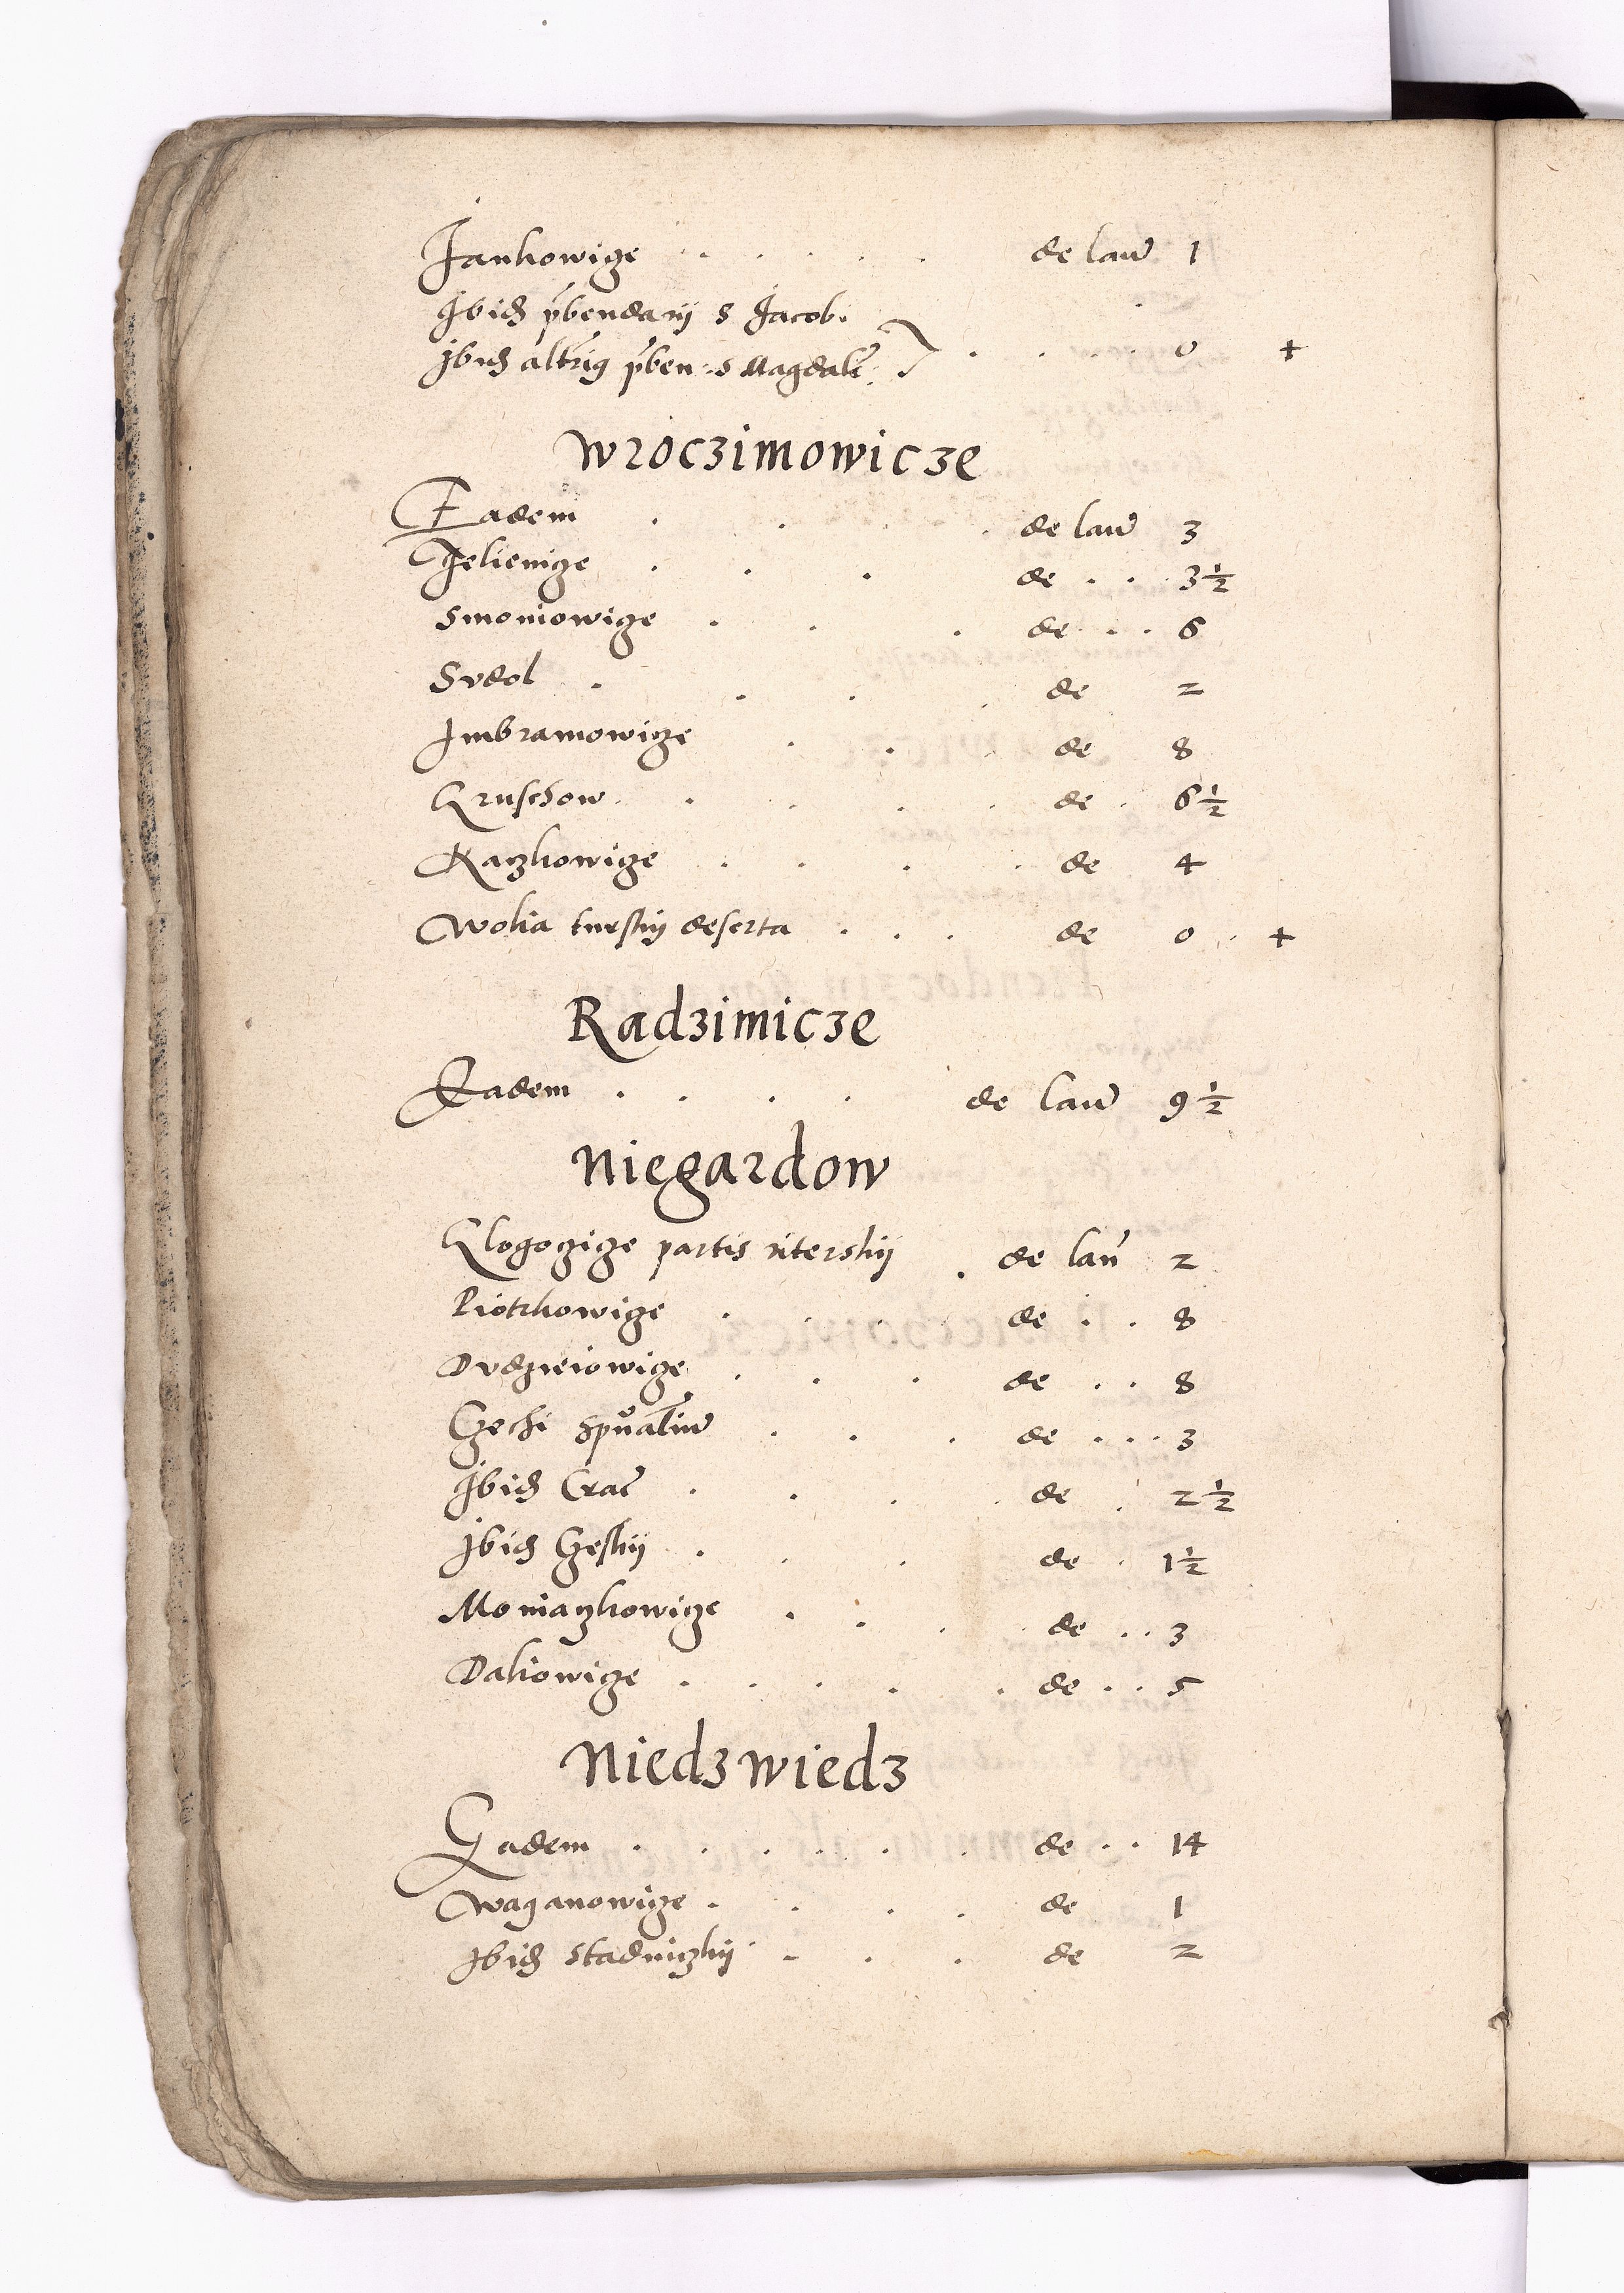 Jankowicze . . . . . de lan 1
Ibid pbendarij S Jacobi
Ibid alterig pben: S Magdale . . . . 0 +
Wroczimowicze
Eadem . . . . de lan 3
Jelienicze . . . de . . . 3 1/2
Smoniowicze . . . de . . . 6
Sudol . . . . de 2
Imbramowicze . . de 8
Kruschow . . . . . de . 6 1/2
Raczkowicze . . . . de 4
Wolia turskij deserta . . . de 0 . +
Radzimicze
Eadem . . . . de lan 9 1/2
Niegardow
Klogoczicze partis riterskij . de lan 2
Piotrkowicze . . . . de . . 8
Dudzieiowicze . . . de . . 8
Czechi spualiu . . . de . . . 3
Ibid Crac . . . . de . 2 1/2
Ibid Czeskij . . . de . 1 1/2
Moniaczkowicze . . . . de . . 3
Dakowicze . . . . . de . . 5
Niedzwiedz
Eadem . . . . . . de . . 14
Waganowicze . . . . de 1
Ibid Stadniczkij . . . de 2